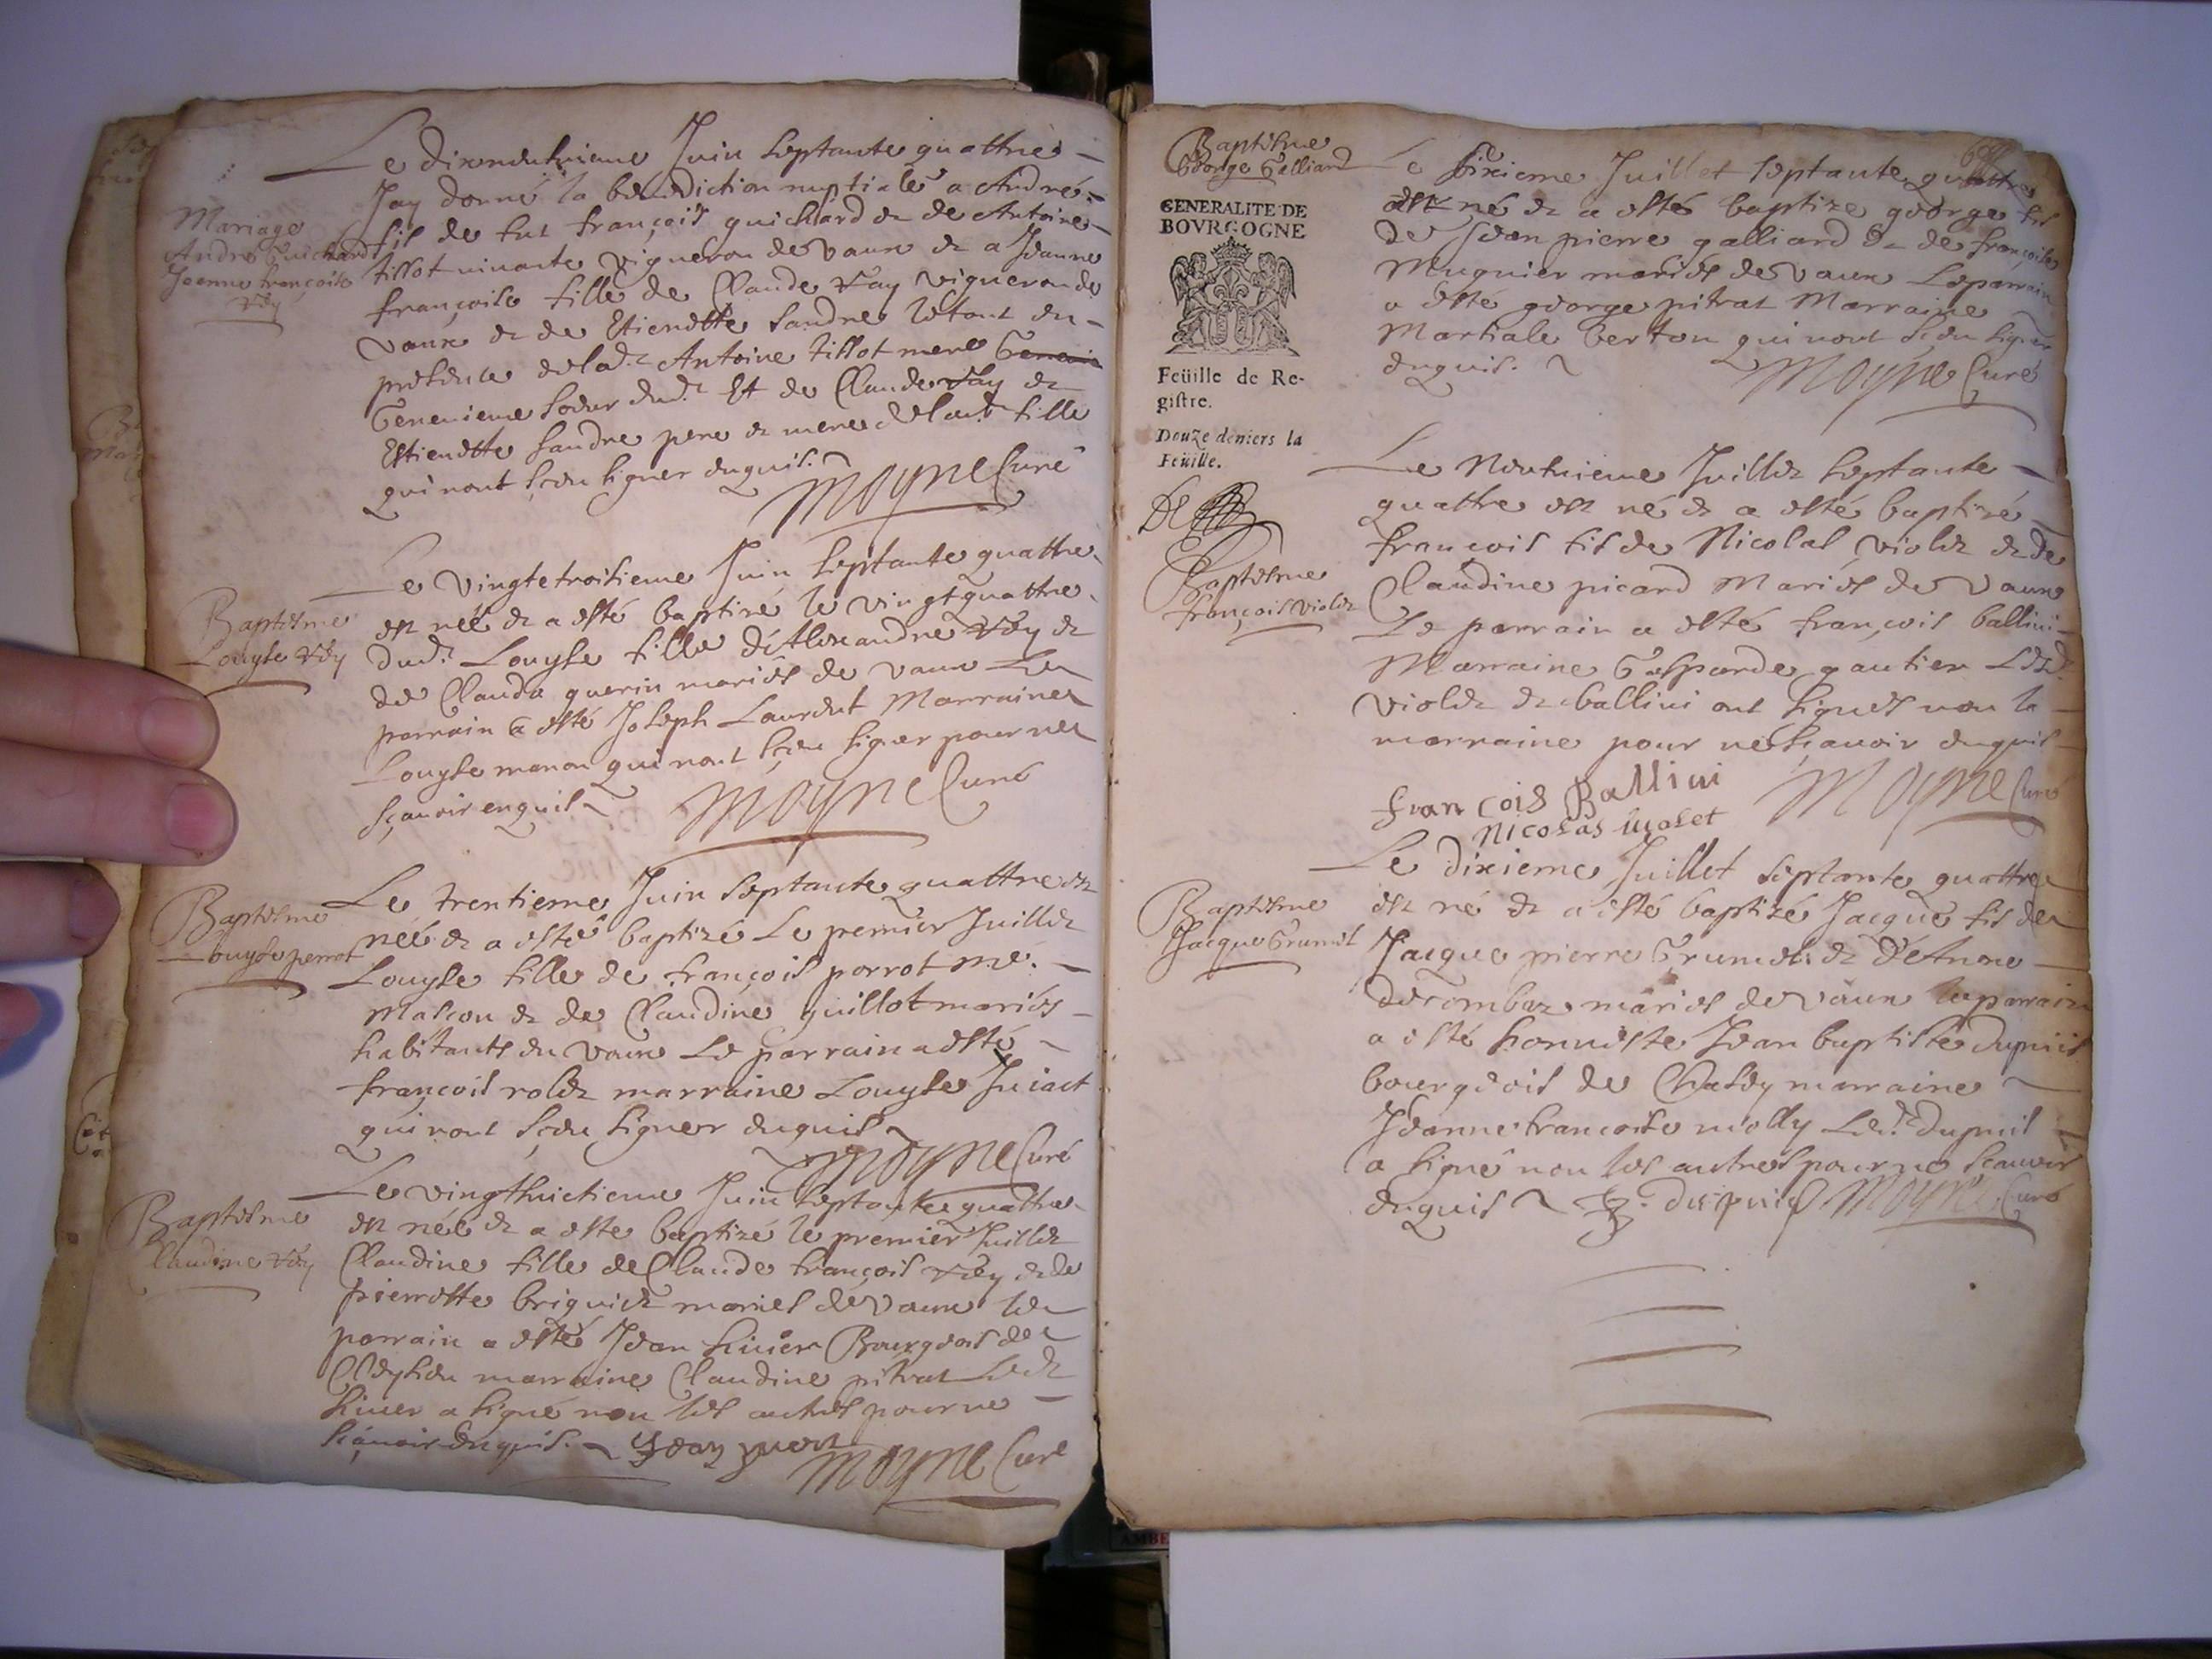 Mariage
André Guichard
Jeanne françoise
Vëy
Le dixneufvieme Juin septante quattre
Jay donné la benediction nuptiale a André
fils de fut françois guichard & de Antoine
fillot vivante vigneron de vaux & a Jeanne
françoise fille de Claude Vay vigneron de
vaux & de Etienette Sandre le tout en
presence de lad. Antoine fillot mere
Genevieve soeur dud. Et de Claude Vay &
Estienette Sandre pere & mere de lad. fille
qui nont sceu signer enquis.
Moyne Curé
Baptesme
Louyse Vëy
Le vingtetroisieme Juin septante quattre
est neé & a esté baptizé le vingtquattre
dud. Louyse fille d'Alexandre Vëy &
de Clauda guerin mariés de vaux Le
parrain a esté Joseph Laurent Marraine
Louyse manon qui nont sceu signer pour ne
sçavoir enquis
Moyne Curé
Baptesme
Louyse perrot
Le trentieme Juin septante quattre est
neé & a esté baptizé Le premier Juillet
Louyse fille de françois perrot me.
Masson & de Claudine guillot mariés
habitants du vaux Le parrain a esté
françois rolet marraine Louyse Juiact
qui nont sceu signer enquis
Moyne Curé
Baptesme
Claudine Vëy
Le vingthuictieme Juin septante quattre
est neé & a esté baptizé le premier Juillet
Claudine fille de Claude françois Vëy & de
pierrette briguiet mariés de vaux le
parrain a esté Jean hiuer Bourgeois de
marraine Claudine pitrat Led.
hiuer a signé non les autres pour ne
sçavoir enquis.
Moyne Curé
Baptesme
George Galliard
GENERALITE DE
BOVRGOGNE
Feüille de Re-
gistre.
Douze deniers la
Feüille.
Le sixieme Juillet septante quattre
est né & a esté baptize george fils
de Jean pierre galliard & de françoise
Muguier mariés de vaux Le parrain
a esté george pitrat Marraine
Martiale berton qui nont sceu signer
enquis.
Moyne Curé
Baptesme
françois violet
Le Neufvieme Juillet septante
quattre est né & a esté baptizé
françois fils de Nicolas violet & de
Claudine picard Mariés de vaux
Le parrain a esté françois ballini
Marraine Gasparde gautier Lesd.
violet & ballini ont signés non la
marraine pour ne sçavoir enquis
Moyne Curé
françois Ballini
Nicolas uiolet
Baptesme
Jacque Grumet
Le dixieme Juillet septante quattre
est né & a esté baptizé Jacque fils de
Jacque pierre Grumet & d'Anne
decombaz mariés de vaux le parrain
a esté honneste Jean baptiste dupuis
bourgeois de Chasey marraine
Jeanne francoise molly Led. dupuis
a signé non les autres pour ne scavoir
enquis
dupuis Moyne Curé